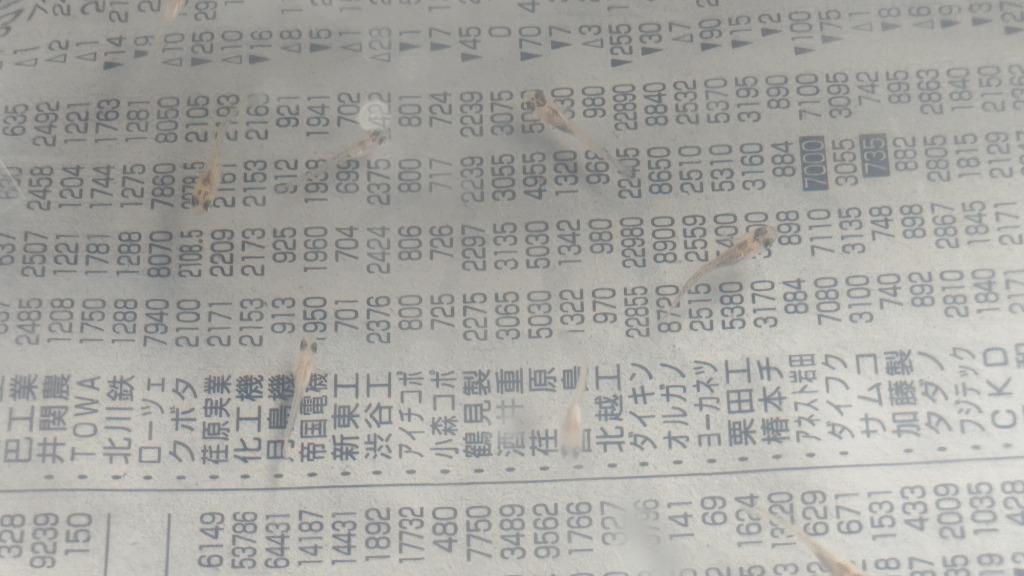 328 巴工業 2485 2507 2458 2492 △2
9239 ・井関農 1208 1221 1204 1221 △1
150 ・TOWA 1750 1781 1744 1763 ▼14
・北川鉄 1288 1288 1275 1281 ▼9
・ローツェ 7940 8070 7860 8050 △10
・クボタ 2100 2108.5 2105 ▼25
6149 ・荏原実業 2171 2209 2161 2193 △10
53786 ・化工機 2153 2173 2153 2163 ▼16
64431 ・月島機 913 925 912 921 △8
14187 ・帝国電機 1950 1960 1941 ▼5
14431 ・新東工 701 704 702 △1
1892 ・渋谷工 2376 2424 2375 △28
17732 ・アイチコポ 800 806 800 801 ▼1
480 ・小森コポ 725 726 717 724 ▼7
7750 ・鶴見製 2275 2297 2239 2239 ▼45
3489 ・酒井重 3065 3135 3055 3075 0
9562 ・荏原 5030 5030 4955 ▼70
1766 ・酉島 1322 1342 1320 ▼7
327 ・北越工 970 980 980 △3
・ダイキン 22855 22980 22890 ▼255
141 ・オルガノ 8720 8900 8650 8840 ▼30
69 ・ヨーカネツ 2515 2559 2510 2532 △7
1624 ・栗田工 5380 5310 5370 ▼90
・椿本チ 3170 3160 3195 ▼15
629 ・アネスト岩田 884 898 884 890 ▼2
671 ・ダイフク 7080 7110 7000 7100 ▼100
1531 ・サムコ 3100 3135 3055 3095 ▼75
433 ・加藤製 740 748 735 742 △1
2009 ・タダノ 882 898 882 895 ▼8
1035 ・フジテック 2810 2867 2805 2863 △6
428 ・CKD 1840 1845 1815 1840 ▼9
2171 2171 2129 2150 ▼3